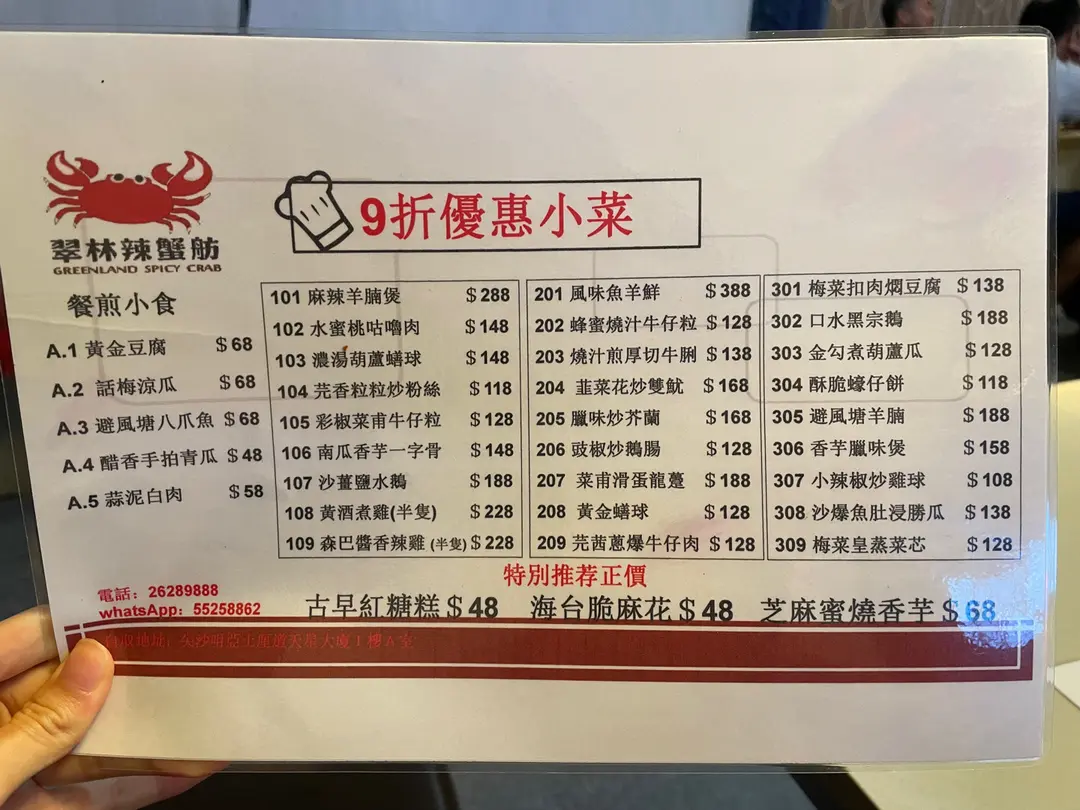 翠林辣蟹舫
GREENLAND SPICY CRAB
9折優惠小菜
餐煎小食
A.1 黃金豆腐 $68
A.2 話梅涼瓜 $68
A.3 避風塘八爪魚 $68
A.4 醋香手拍青瓜 $48
A.5 蒜泥白肉 $58
101 麻辣羊腩煲 $288
102 水蜜桃咕嚕肉 $148
103 濃湯葫蘆蟮球 $148
104 芫香粒粒炒粉絲 $118
105 彩椒菜甫牛仔粒 $128
106 南瓜香芋一字骨 $148
107 沙薑鹽水鵝 $188
108 黃酒煮雞(半隻) $228
109 森巴醬香辣雞 (半隻) $228
201 風味魚羊鮮 $388
202 蜂蜜燒汁牛仔粒 $128
203 燒汁煎厚切牛脷 $138
204 韮菜花炒雙魷 $168
205 臘味炒芥蘭 $168
206 豉椒炒鵝腸 $128
207 菜甫滑蛋龍躉 $188
208 黃金蟮球 $128
209 芫茜蔥爆牛仔肉 $128
301 梅菜扣肉燜豆腐 $138
302 口水黑宗鵝 $188
303 金勾煮葫蘆瓜 $128
304 酥脆蠔仔餅 $118
305 避風塘羊腩 $188
306 香芋臘味煲 $158
307 小辣椒炒雞球 $108
308 沙爆魚肚浸勝瓜 $138
309 梅菜皇蒸菜芯 $128
特別推荐正價
古早紅糖糕 $48 海台脆麻花 $48 芝麻蜜燒香芋 $68
電話：26289888
whatsApp：55258862
取地址：尖沙咀亞士厘道天星大廈1樓A室